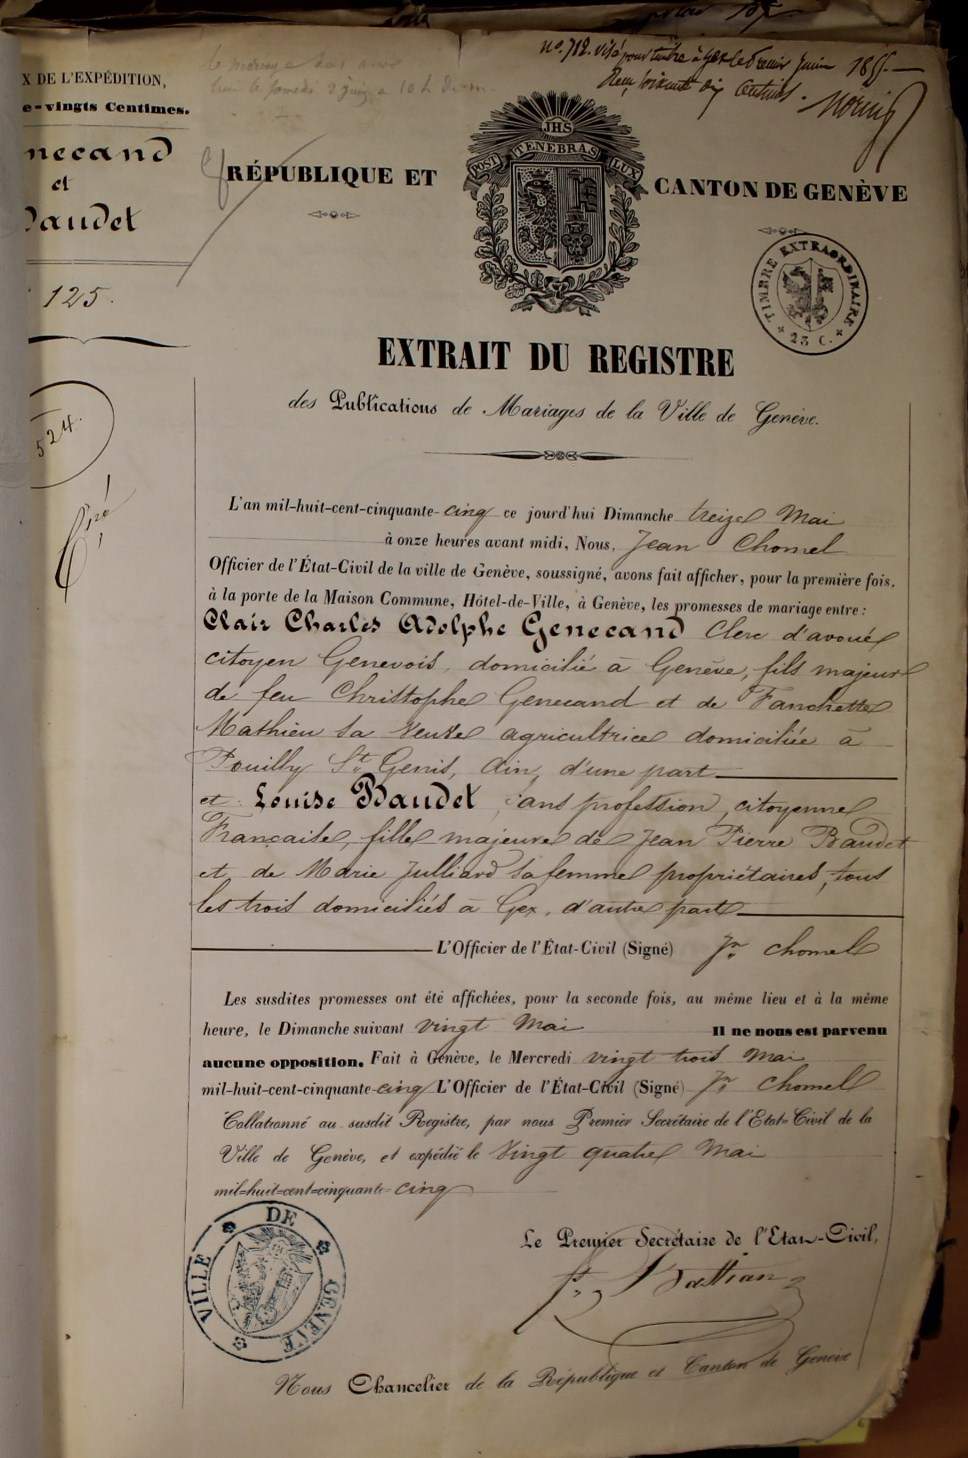 no. 712. visé pour timbre à Gex le premier juin 1855.—
Reçu soixante dix centimes.
X DE L'EXPÉDITION,
e-vingts Centimes.
necand
et
Baudet
125.
524.
RÉPUBLIQUE ET
CANTON DE GENÈVE
JHS
POST TENEBRAS LUX
TIMBRE EXTRAORDINAIRE
25 C.
EXTRAIT DU REGISTRE
des Publications de Mariages de la Ville de Genève.
L'an mil-huit-cent-cinquante-cinq ce jourd'hui Dimanche treize Mai
à onze heures avant midi, Nous, Jean Chomel
Officier de l'État-Civil de la ville de Genève, soussigné, avons fait afficher, pour la première fois,
à la porte de la Maison Commune, Hôtel-de-Ville, à Genève, les promesses de mariage entre:
Clair Charles Adolphe Genecand Clerc d'avoué
citoyen Genevois, domicilié à Genève, fils majeur
de feu Christtophe Genecand et de Fanchette
Mathieu sa veuve agricultrice domiciliée à
Pouilly St. Genis, Ain, d'une part
et Louise Baudet, sans profession, citoyenne
Française, fille majeure de Jean Pierre Baudet
et de Marie Julliard sa femme propriétaires, tous
les trois domiciliés à Gex, d'autre part
L'Officier de l'État-Civil (Signé) Jn. Chomel
Les susdites promesses ont été affichées, pour la seconde fois, au même lieu et à la même
heure, le Dimanche suivant vingt Mai Il ne nous est parvenu
aucune opposition. Fait à Genève, le Mercredi vingt trois Mai
mil-huit-cent-cinquante-cinq L'Officier de l'État-Civil (Signé) Jn. Chomel
Collationné au susdit Registre, par nous Premier Secrétaire de l'Etat-Civil de la
Ville de Genève, et expédié le vingt quatre Mai
mil-huit-cent-cinquante-cinq
Le Premier Secrétaire de l'Etat-Civil,
VILLE DE GENEVE
Nous Chancelier de la République et Canton de Genève